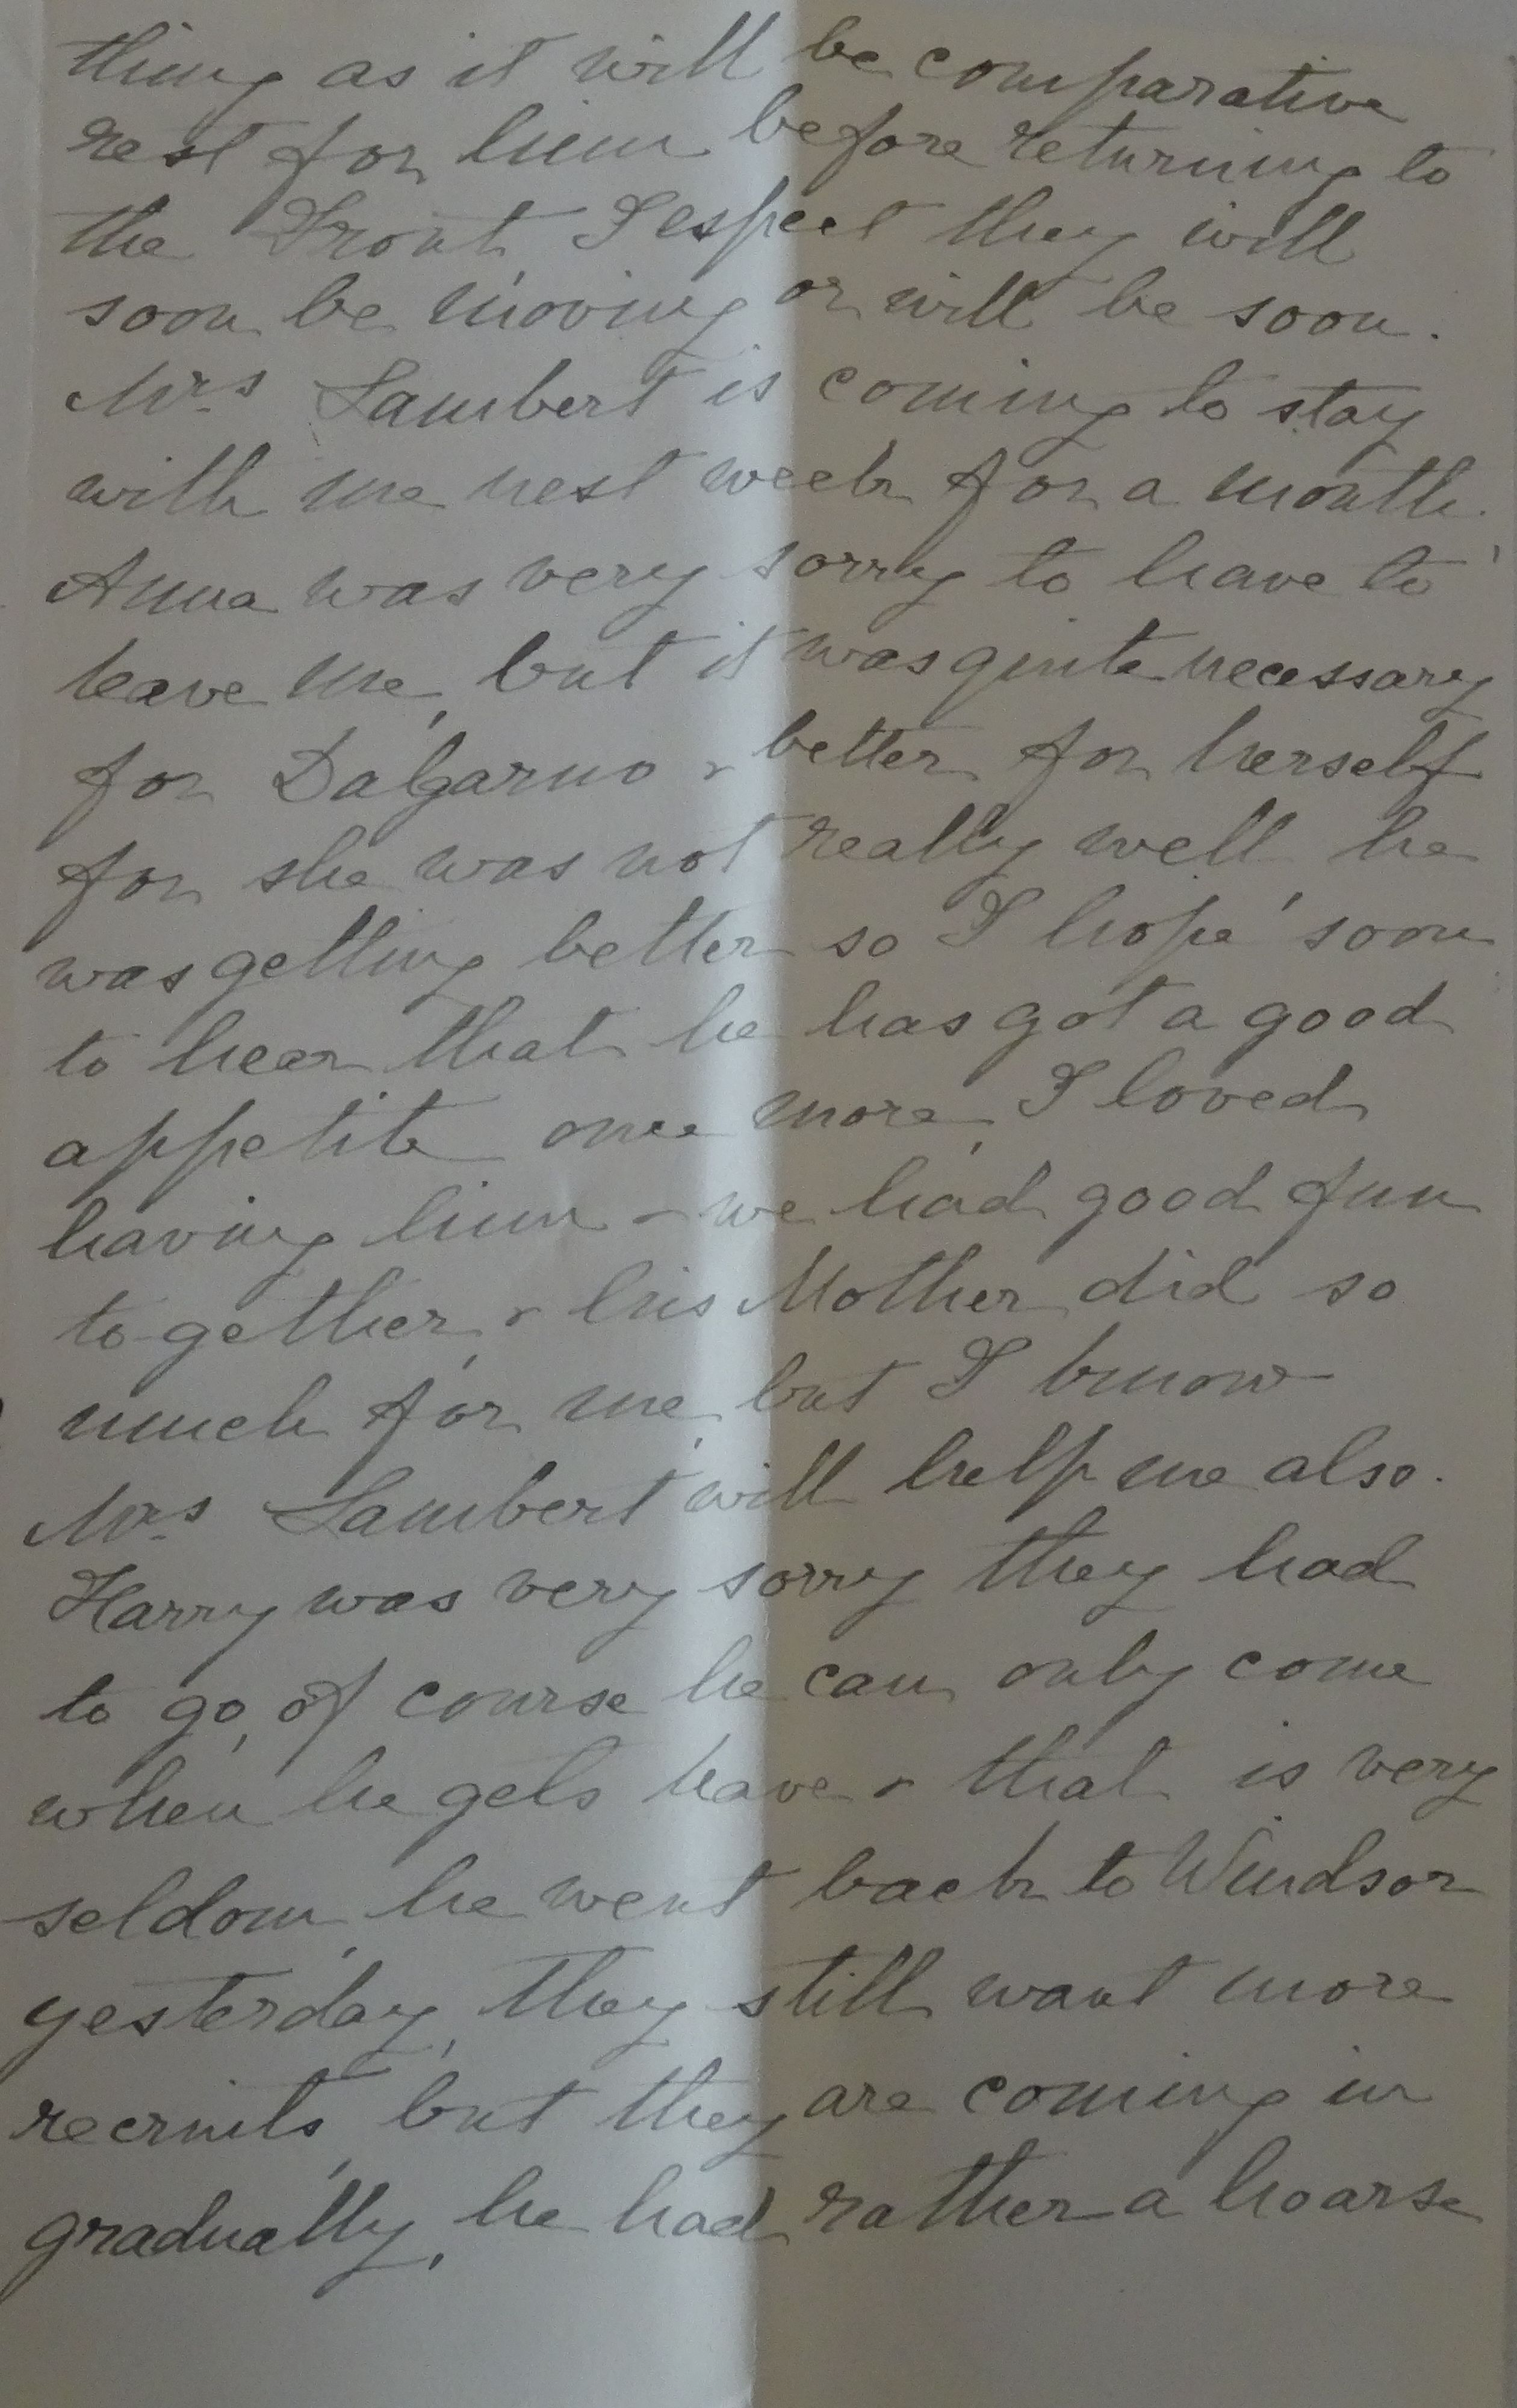 thing as it will be comparative
rest for him before returning to
the Front, I expect they will
soon be moving or will be soon.
Mrs Lambert is coming to stay
with me next week for a month.
Anna was very sorry to have to
leave me, but it was quite necessary
for Dalgarno & better for herself
for she was not really well he
was getting better so I hope soon
to hear that he has got a good
appetite once more, I loved
having him - we had good fun
to-gether, & his Mother did so
much for me, but I know
Mrs Lambert will help me also.
Harry was very sorry they had
to go, of course he can only come
when he gets leave & that is very
seldom, he went back to Windsor
yesterday, they still want more
recruits, but they are coming in
gradually, he had rather a hoarse